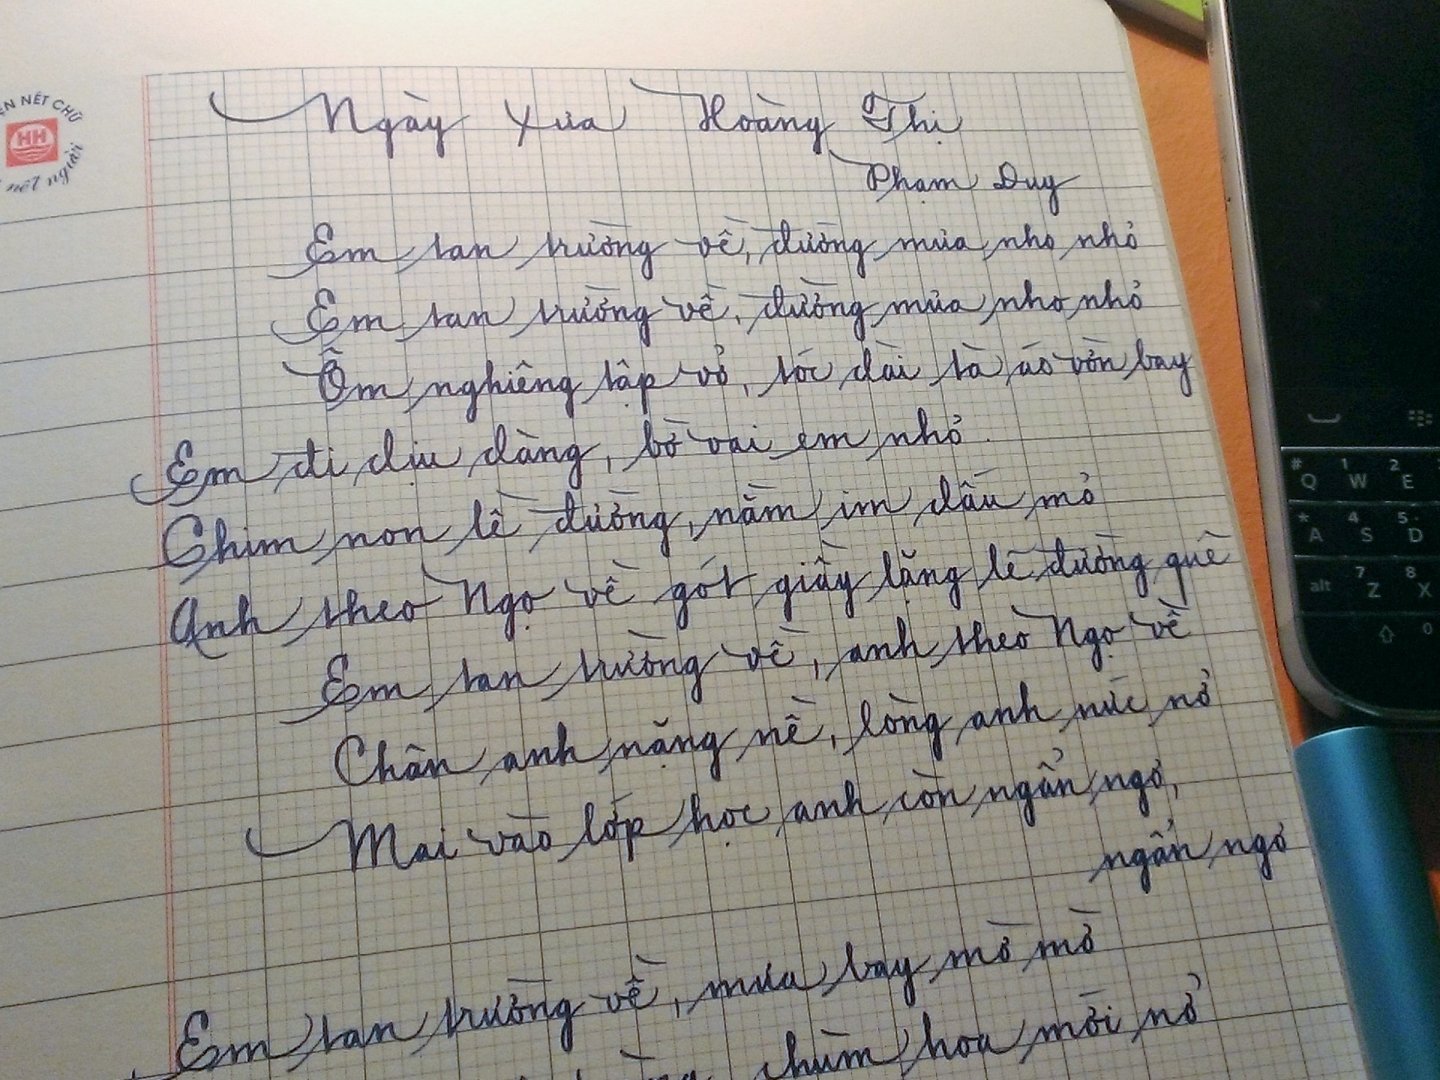 Ngày Xưa Hoàng Thị
Phạm Duy
Em tan trường về, đường mưa nho nhỏ
Em tan trường về, đường mưa nho nhỏ
Ôm nghiêng tập vở, tóc dài tà áo vờn bay
Em đi dịu dàng, bờ vai em nhỏ
Chim non lề đường, nằm im dấu mỏ
Anh theo Ngọ về gót giầy lặng lẽ đường quê
Em tan trường về, anh theo Ngọ về
Chân anh nặng nề, lòng anh nức nở
Mai vào lớp học anh còn ngẩn ngơ,
ngẩn ngơ
Em tan trường về, mưa bay mờ mờ
chùm hoa mới nở
NÉT CHỮ
HH
nết người
# Q 1 W 2 E
* A 4 S 5 D
alt 7 Z 8 X
0